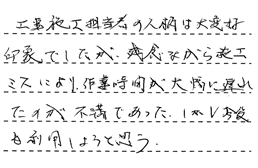 工事施工担当者の人柄は大変好
印象でしたが、残念ながら施工
ミスにより作業時間が大幅に遅れ
たのが不満であった。しかし今後
も利用しようと思う。